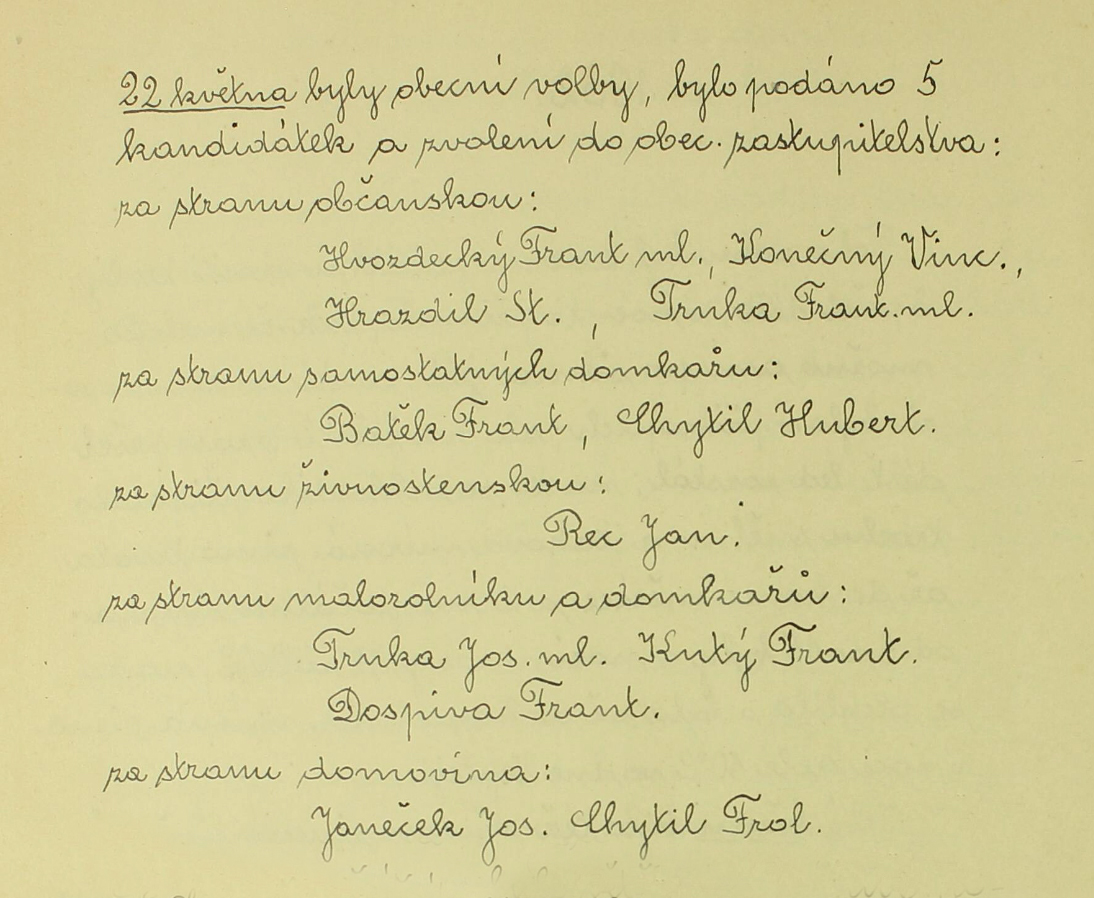 22 května byly obecní volby, bylo podáno 5
kandidátek a zvolení do obec. zastupitelstva:
za stranu občanskou:
Hvozdecký Frant ml., Konečný Vinc.,
Hrazdil St. , Trnka Frant. ml.
za stranu samostatných domkařu:
Batěk Frant , Chytil Hubert.
za stranu živnostenskou:
Rec Jan.
za stranu malorolníku a domkařů:
Trnka Jos. ml. Kutý Frant.
Dospiva Frant.
za stranu domovina:
Janeček Jos. Chytil Frol.